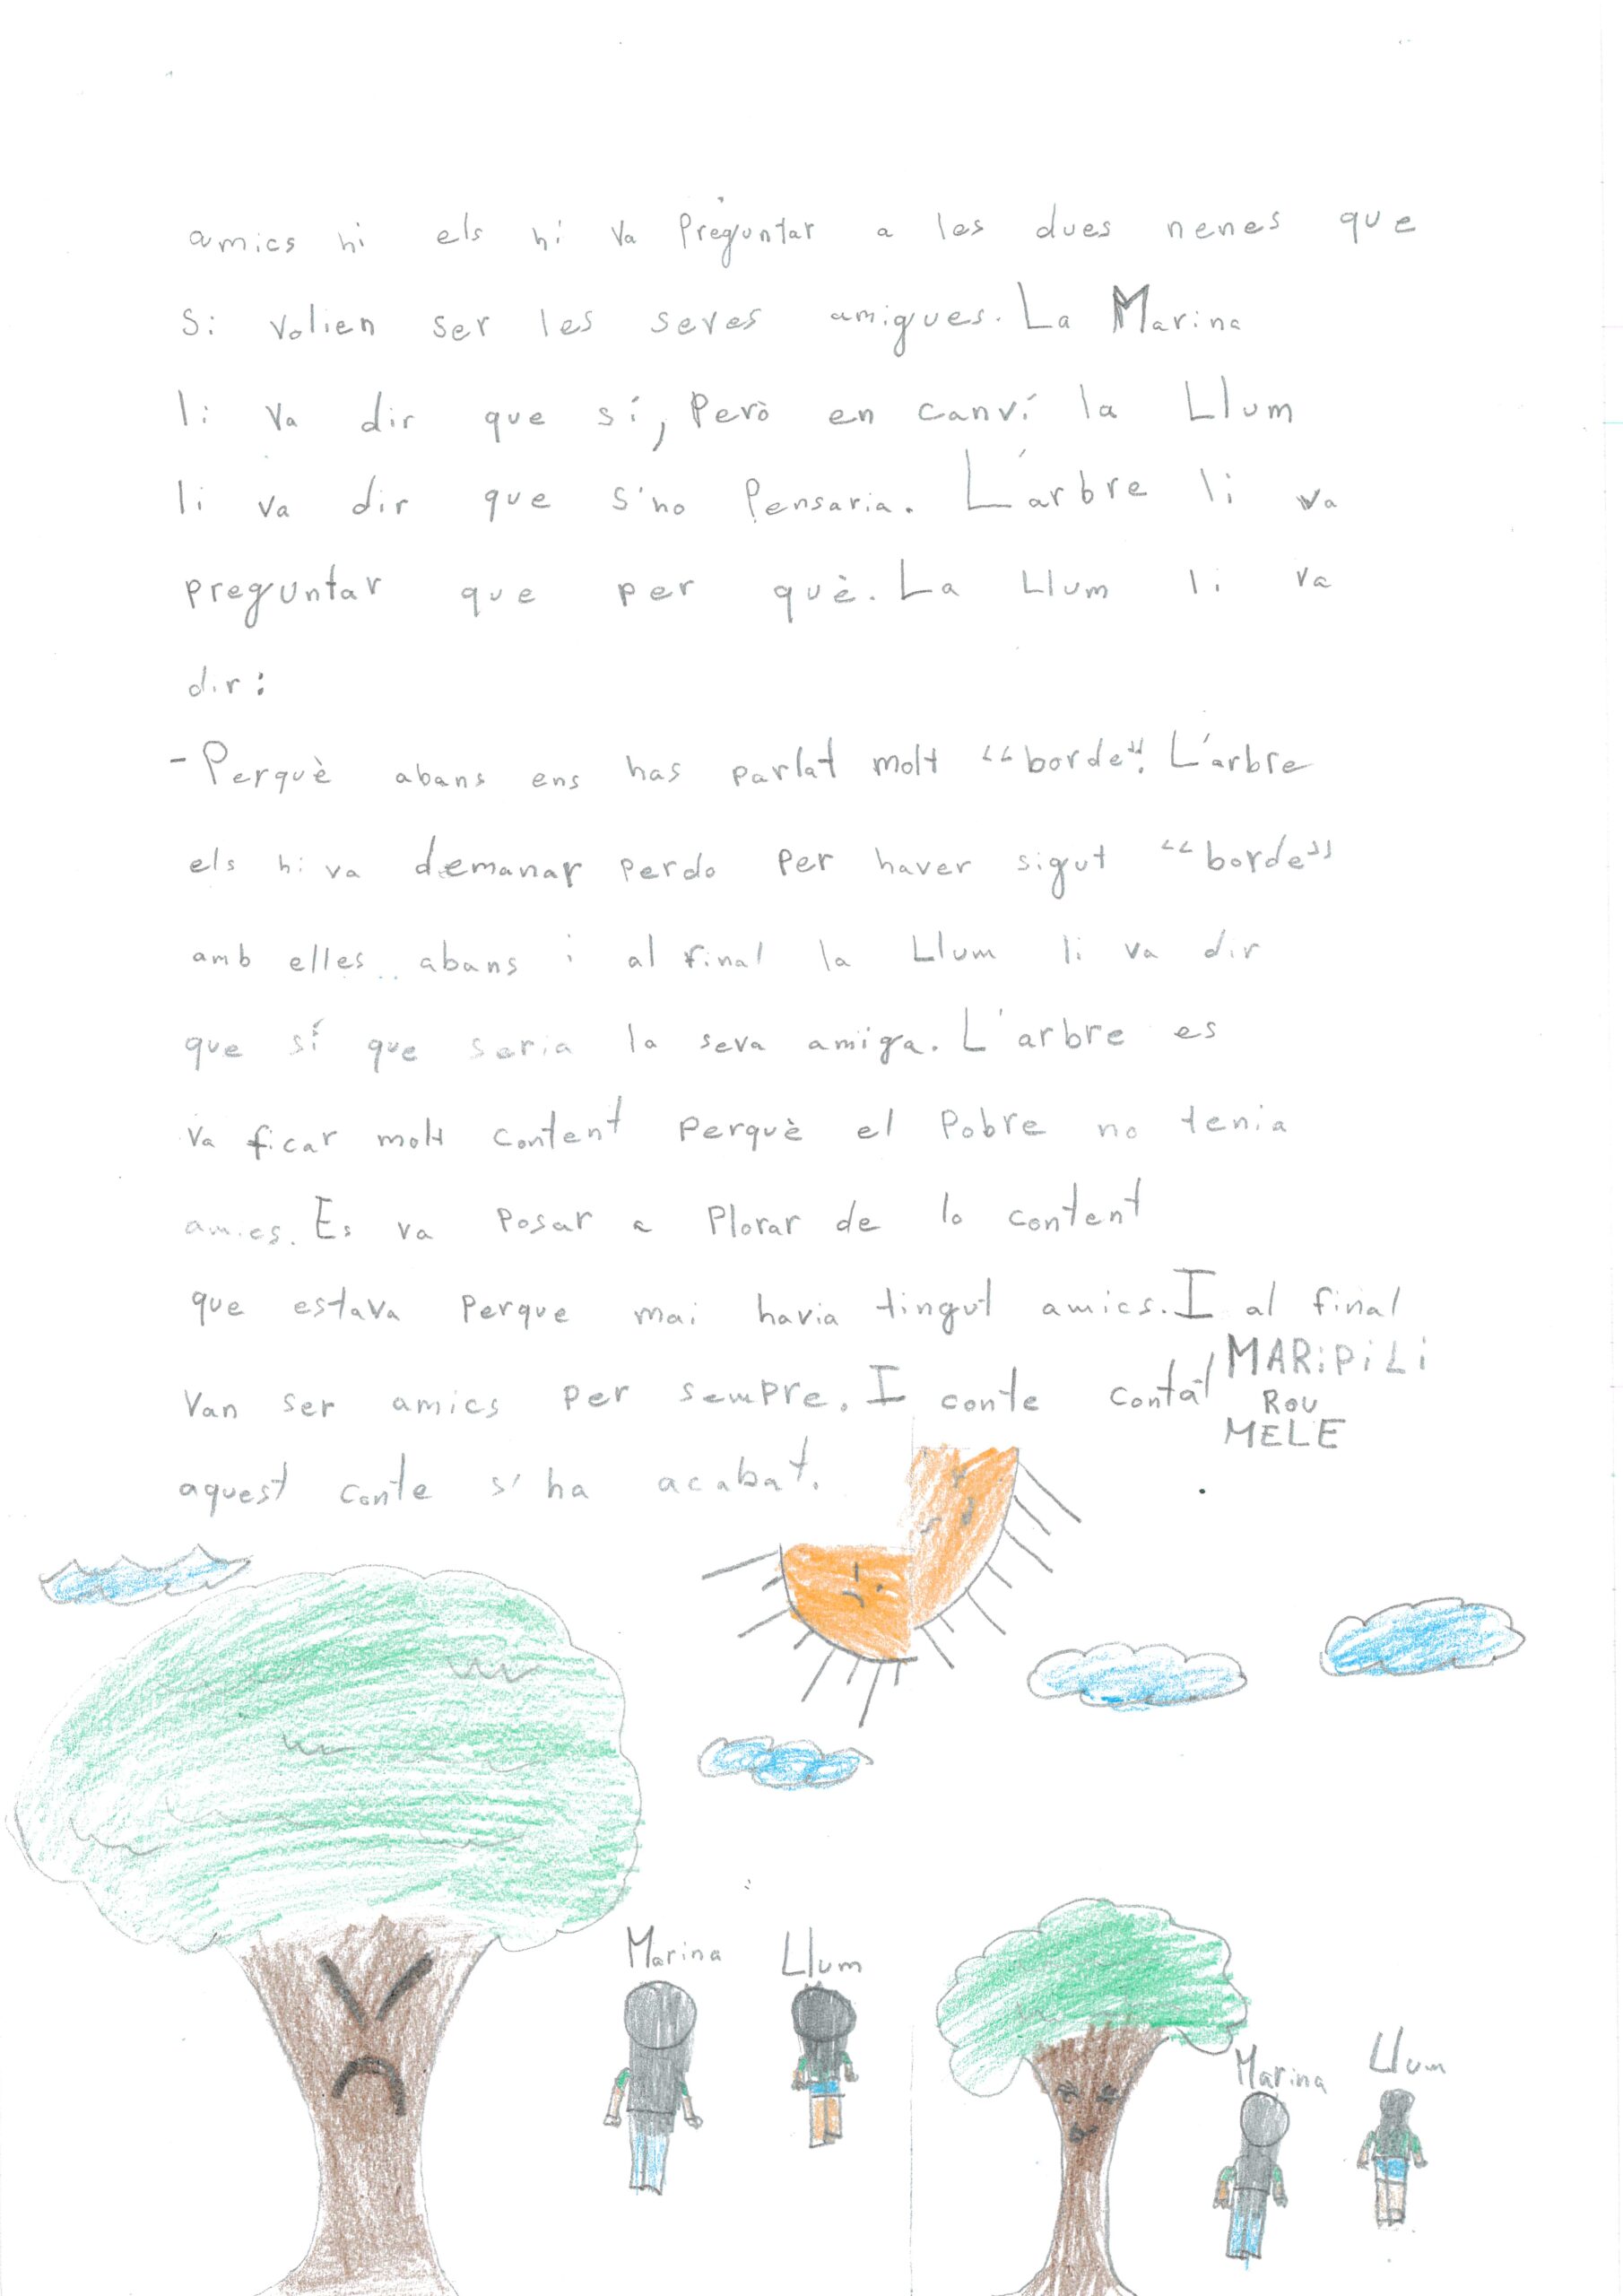 amics hi els hi va preguntar a les dues nenes que
si volien ser les seves amigues. La Marina
li va dir que sí, però en canví la Llum
li va dir que s'ho pensaria. L'arbre li va
preguntar que per què. La Llum li va
dir:
- Perquè abans ens has parlat molt “borde”. L'arbre
els hi va demanar perdo per haver sigut “borde”
amb elles abans i al final la Llum li va dir
que sí que seria la seva amiga. L'arbre es
va ficar molt content perquè el pobre no tenia
amics. Es va posar a plorar de lo content
que estava perque mai havia tingut amics. I al final
van ser amics per sempre. I conte contat
aquest conte s'ha acabat.
MARiPiLi
ROU
MELE
Marina Llum
Marina Llum